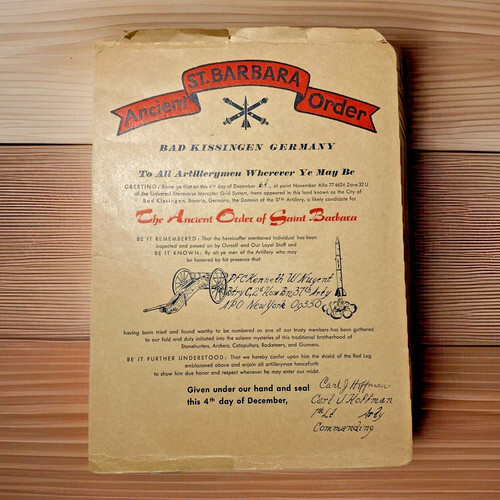 Ancient ST. BARBARA Order
BAD KISSINGEN GERMANY
To All Artillerymen Wherever Ye May Be
GREETING: Know ye that on this 4th day of December 64, at point November Alfa 77 4624 Zone 32 U
of the Universal Transverse Mercator Grid System, there appeared in this land known as the City of
Bad Kissingen, Bavaria, Germany, the Domain of the 37th Artillery, a likely candidate for
The Ancient Order of Saint Barbara
BE IT REMEMBERED: That the hereinafter mentioned individual has been
inspected and passed on by Ourself and Our Loyal Staff and
BE IT KNOWN: By all ye men of the Artillery who may
be honored by his presence that
PFC Kenneth W Nugent
Btry C, 2d How Bn, 37th Arty
APO New York 09330
having been tried and found worthy to be numbered as one of our trusty members has been gathered
to our fold and duly initiated into the solemn mysteries of this traditional brotherhood of
Stonehurlers, Archers, Catapulters, Rocketeers, and Gunners.
BE IT FURTHER UNDERSTOOD: That we hereby confer upon him the shield of the Red Leg
emblazoned above and enjoin all artillerymen henceforth
to show him due honor and respect whenever he may enter our midst.
Given under our hand and seal
this 4th day of December,
Carl J Hoffman
Carl J Hoffman
1st Lt Arty
Commanding